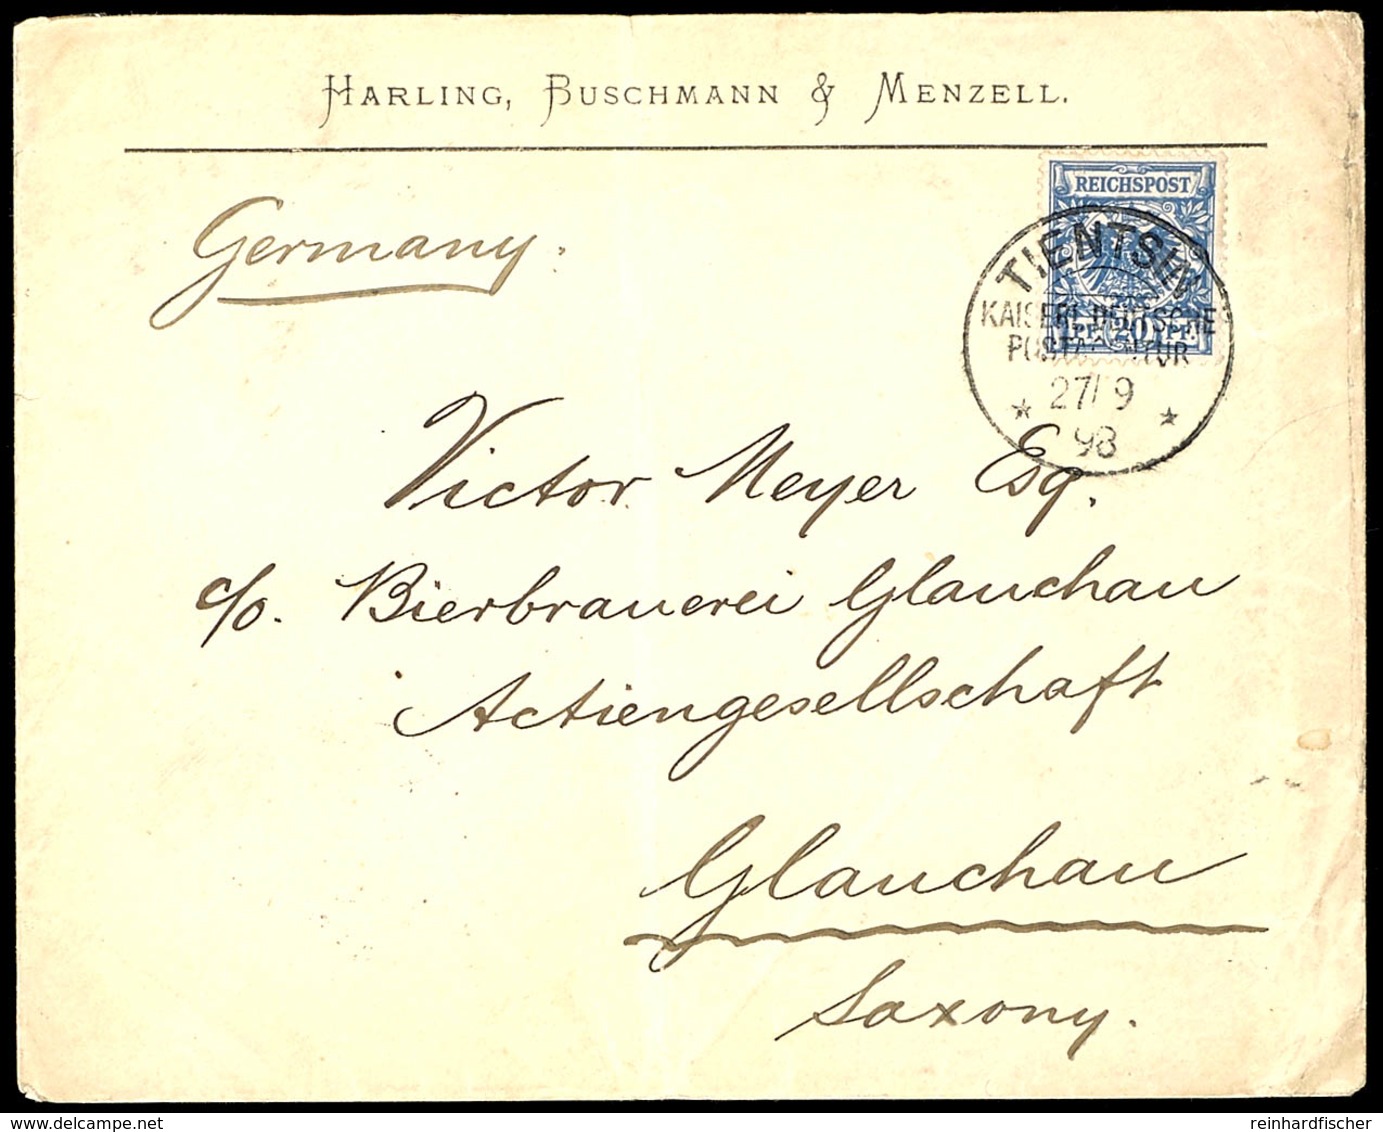 HARLING, BUSCHMANN & MENZELL.
Germany.
REICHSPOST
PF. 20 PF.
TIENTSIN
KAISERL. DEUTSCHE
POSTAGENTUR
27/9
98
Victor Meyer Esq.
c/o. Bierbrauerei Glauchau
Actiengesellschaft
Glauchau
Saxony.
reinhardfischer